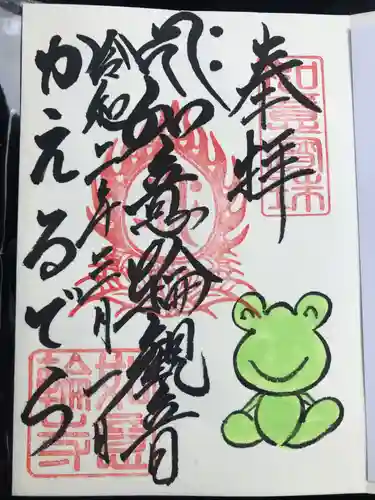 奉拝
如意宝珠
如意輪観音
令和二年三月一日
かえるでら
如意輪寺